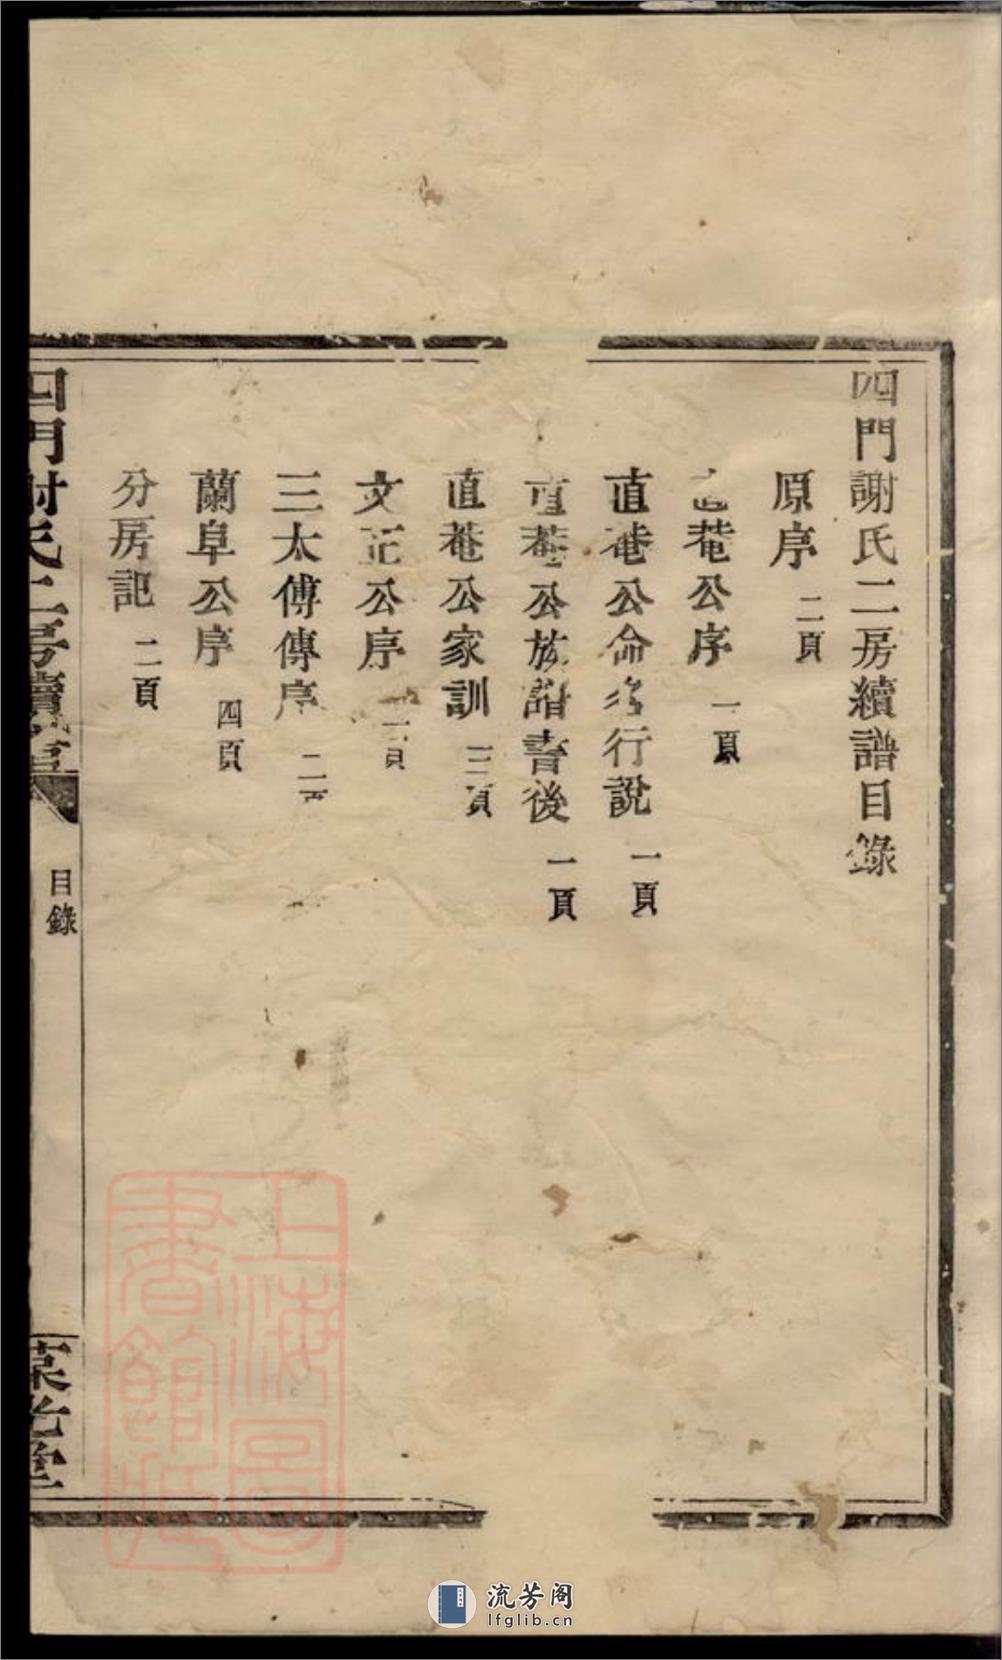 四門謝氏二房續譜目錄
原序 二頁
直菴公序 一頁
直菴公命名行說 一頁
直菴公族譜書後 一頁
直菴公家訓 三頁
文正公序 二頁
三太傅傳序 二頁
蘭阜公序 四頁
分房記 二頁
四門謝氏二房續譜
目錄
堂
上海圖書館藏
流芳阁
lfglib.cn